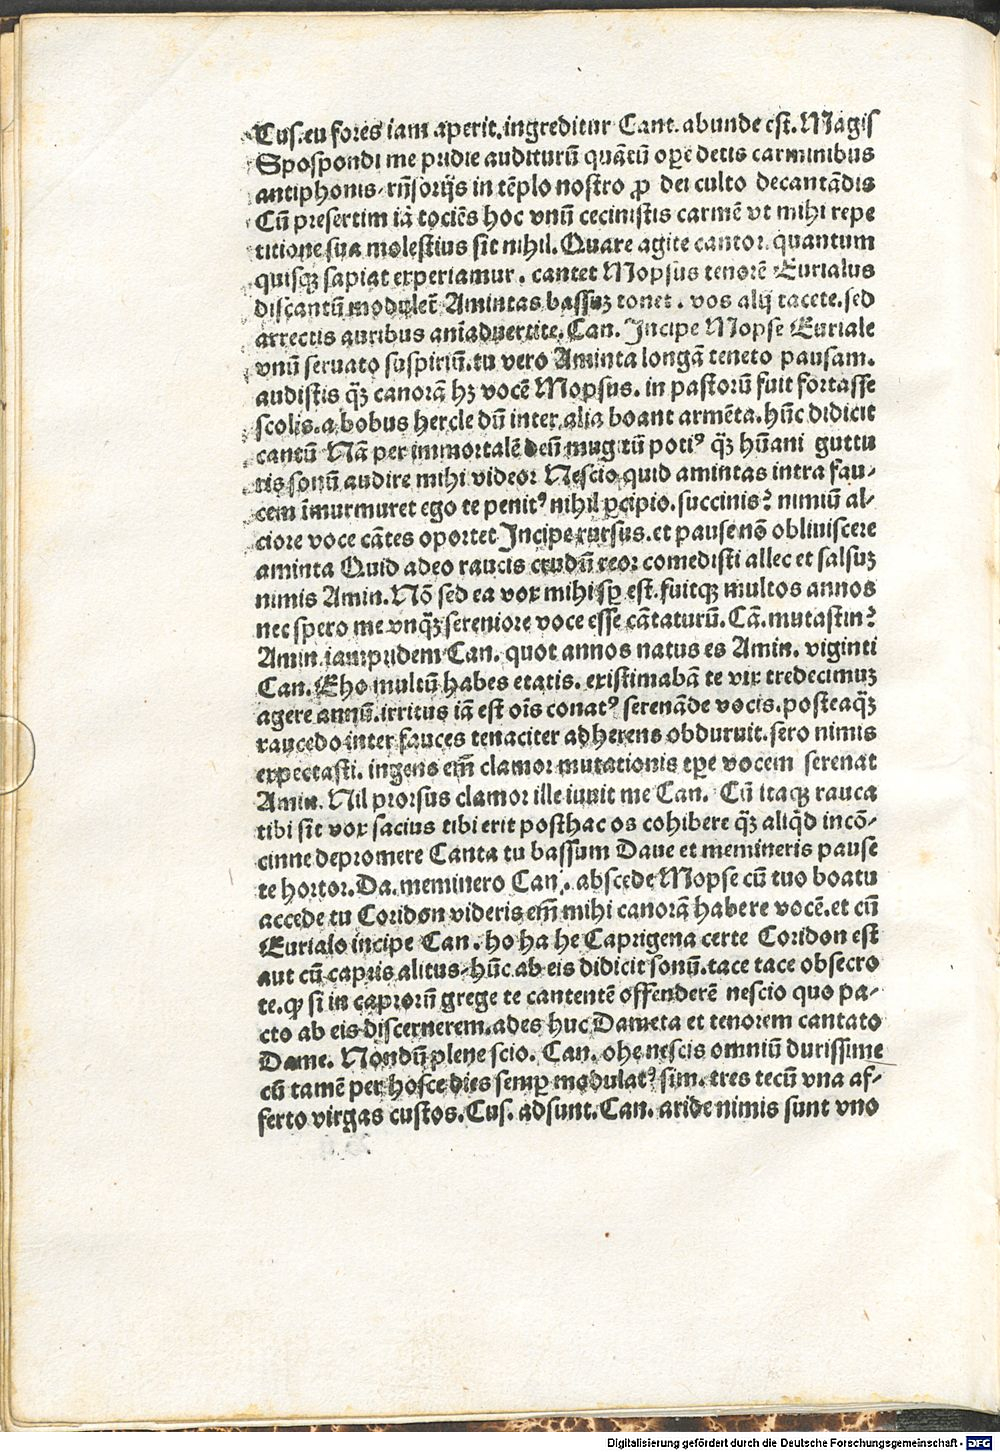 Cus. eu fores iam aperit. ingreditur Cant. abunde est. Magis
Spospondi me pridie auditurū quātū oꝑe detis carminibus
antiphonis, rn̄sorijs in tēplo nostro ꝓ dei culto decantādis
Cū presertim iā tociēs hoc vnū cecinistis carmē vt mihi repe
titione sua molestius sit nihil. Quare agite cantor. quantum
quisqȝ sapiat experiamur. cantet Mopsus tenorē Eurialus
discantū modulet᷑ Amintas bassuȝ tonet. vos alij tacete. sed
arrectis auribus aniaduertite. Can. Incipe Mopse Euriale
vnū seruato suspiriū. tu vero Aminta longā teneto pausam.
audistis qȝ̄ canorā hȝ vocē Mopsus. in pastorū fuit fortasse
scolis. a bobus hercle dū inter alia boant armēta. hūc didicit
cantū Nā per immortalē deū mugitū poti⁹ qȝ̄ hūani guttu
ris sonū audire mihi videor Nescio quid amintas intra fau-
cem īmurmuret ego te penit⁹ nihil ꝑcipio. succinis? nimiū al-
ciore voce cātes oportet Incipe rursus. et pause nō obliuiscere
aminta Quid adeo raucis crudū reor comedisti allec et salsuȝ
nimis Amin. Nō sed ea vox mihi sꝑ est. fuitqȝ multos annos
nec spero me vnqȝ̄ sereniore voce esse cātaturū. Cā. mutastin?
Amin. iampridem Can. quot annos natus es Amin. viginti
Can. Eho multū habes etatis. existimabā te vix tredecimuȝ
agere annū. irritus iā est oīs conat⁹ serenāde vocis. posteaqȝ̄
raucedo inter fauces tenaciter adherens obduruit. sero nimis
expectasti. ingens em̄ clamor mutationis tꝑe vocem serenat
Amin. Nil prorsus clamor ille iuuit me Can. Cū itaqȝ rauca
tibi sit vox sacius tibi erit posthac os cohibere qȝ̄ aliqd̓ incō-
cinne depromere Canta tu bassum Daue et memineris pause
te hortor. Da. meminero Can. abscede Mopse cū tuo boatu
accede tu Coridon videris em̄ mihi canorā habere vocē. et cū
Eurialo incipe Can. ho ha he Caprigena certe Coridon est
aut cū capris alitus, hūc ab eis didicit sonū. tace tace obsecro
te. ꝙ si in caprorū grege te cantentē offenderē nescio quo pa-
cto ab eis discernerem. ades huc Dameta et tenorem cantato
Dame. Nondū plene scio. Can. ohe nescis omniū durissime
cū tamē per hosce dies semꝑ modulat⁹ sim. tres tecū vna af-
ferto virgas custos. Cus. adsunt. Can. aride nimis sunt vno
Digitalisierung gefördert durch die Deutsche Forschungsgemeinschaft - DFG